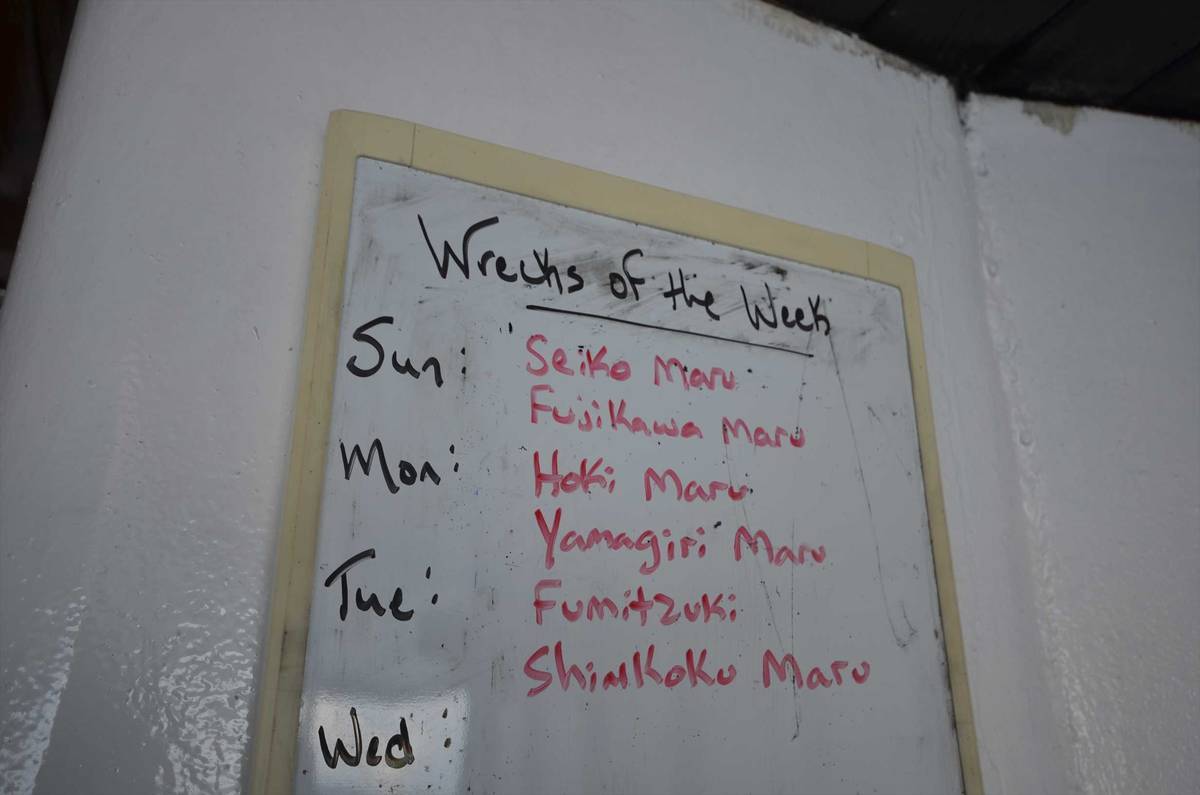 Wrecks of the Week
Sun: Seiko Maru
Fujikawa Maru
Mon: Hoki Maru
Yamagiri Maru
Tue: Fumitzuki
Shinkoku Maru
Wed: